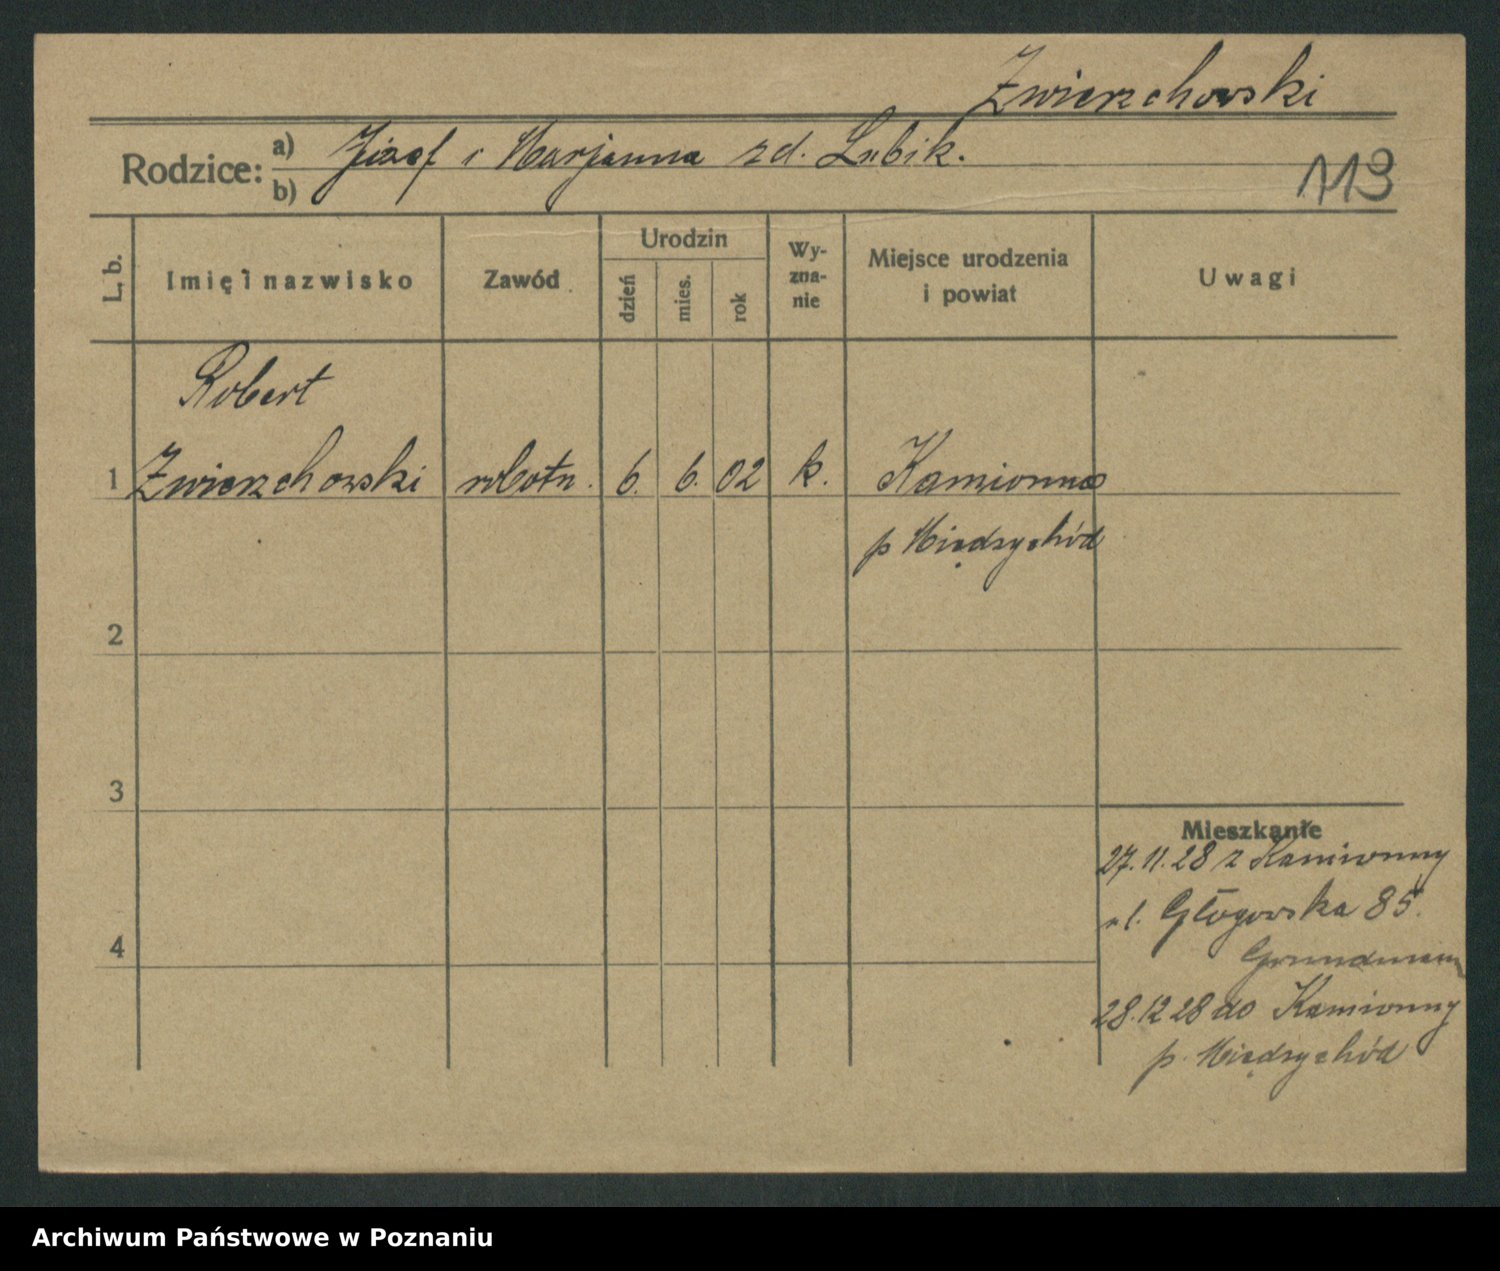 Zwierzchowski
Rodzice: a) Józef i Marjanna zd. Lubik.
b)
113
L. b.
Imię i nazwisko
Zawód
Urodzin
dzień
mies.
rok
Wy-
zna-
nie
Miejsce urodzenia
i powiat
Uwagi
Robert
1 Zwierzchowski robotn. 6. 6. 02 k. Kamionna
p Międzychód
2
3
Mieszkanie
27.11.28 z Kamionny
ul. Głogowska 85.
4
Grundmann
28.12 28 do Kamionny
p. Międzychód
Archiwum Państwowe w Poznaniu